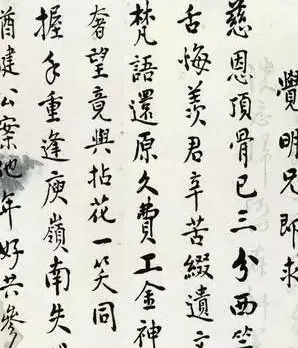 覺明兄即求
慈恩頂骨已三分西竺
舌悔羨君辛苦綴遺文
梵語還原久費工金神
奢望竟與拈花一笑同
握手重逢庾嶺南失明
猶健公案他年好共參